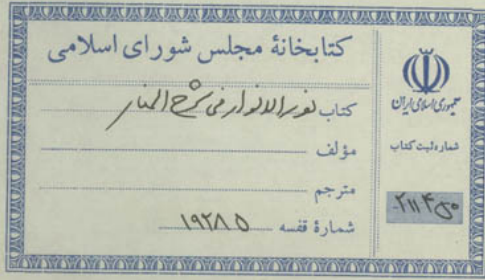 کتابخانهٔ مجلس شورای اسلامی
کتاب نورالانوار فی شرح المنار
مؤلف
مترجم
شمارهٔ قفسه ۱۹۲۸۵
جمهوری اسلامی ایران
شماره ثبت کتاب